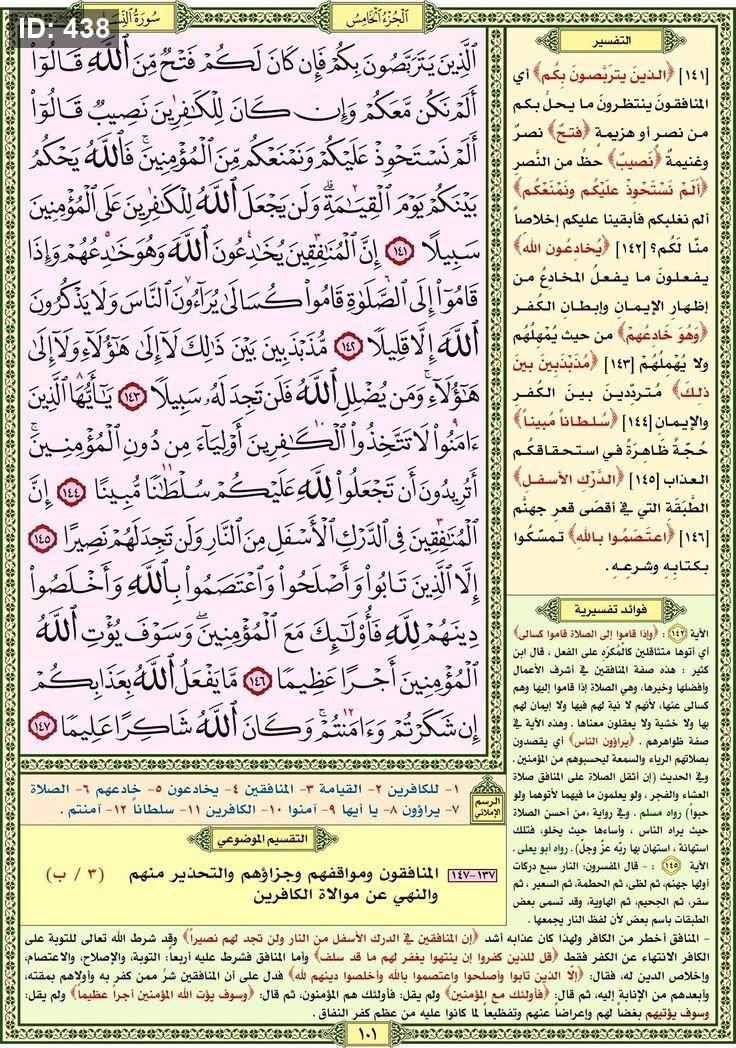 ID: 438
سُورَةُ النِّسَاء
الْجُزْءُ الْخَامِسُ
ٱلَّذِينَ يَتَرَبَّصُونَ بِكُمْ فَإِن كَانَ لَكُمْ فَتْحٌ مِّنَ ٱللَّهِ قَالُوٓا۟
أَلَمْ نَكُن مَّعَكُمْ وَإِن كَانَ لِلْكَٰفِرِينَ نَصِيبٌ قَالُوٓا۟
أَلَمْ نَسْتَحْوِذْ عَلَيْكُمْ وَنَمْنَعْكُم مِّنَ ٱلْمُؤْمِنِينَ ۚ فَٱللَّهُ يَحْكُمُ
بَيْنَكُمْ يَوْمَ ٱلْقِيَٰمَةِ ۗ وَلَن يَجْعَلَ ٱللَّهُ لِلْكَٰفِرِينَ عَلَى ٱلْمُؤْمِنِينَ
سَبِيلًا ١٤١ إِنَّ ٱلْمُنَٰفِقِينَ يُخَٰدِعُونَ ٱللَّهَ وَهُوَ خَٰدِعُهُمْ وَإِذَا
قَامُوٓا۟ إِلَى ٱلصَّلَوٰةِ قَامُوا۟ كُسَالَىٰ يُرَآءُونَ ٱلنَّاسَ وَلَا يَذْكُرُونَ
ٱللَّهَ إِلَّا قَلِيلًا ١٤٢ مُّذَبْذَبِينَ بَيْنَ ذَٰلِكَ لَآ إِلَىٰ هَٰٓؤُلَآءِ وَلَآ إِلَىٰ
هَٰٓؤُلَآءِ ۚ وَمَن يُضْلِلِ ٱللَّهُ فَلَن تَجِدَ لَهُۥ سَبِيلًا ١٤٣ يَٰٓأَيُّهَا ٱلَّذِينَ
ءَامَنُوا۟ لَا تَتَّخِذُوا۟ ٱلْكَٰفِرِينَ أَوْلِيَآءَ مِن دُونِ ٱلْمُؤْمِنِينَ ۚ
أَتُرِيدُونَ أَن تَجْعَلُوا۟ لِلَّهِ عَلَيْكُمْ سُلْطَٰنًا مُّبِينًا ١٤٤ إِنَّ
ٱلْمُنَٰفِقِينَ فِى ٱلدَّرْكِ ٱلْأَسْفَلِ مِنَ ٱلنَّارِ وَلَن تَجِدَ لَهُمْ نَصِيرًا ١٤٥
إِلَّا ٱلَّذِينَ تَابُوا۟ وَأَصْلَحُوا۟ وَٱعْتَصَمُوا۟ بِٱللَّهِ وَأَخْلَصُوا۟
دِينَهُمْ لِلَّهِ فَأُو۟لَٰٓئِكَ مَعَ ٱلْمُؤْمِنِينَ ۖ وَسَوْفَ يُؤْتِ ٱللَّهُ
ٱلْمُؤْمِنِينَ أَجْرًا عَظِيمًا ١٤٦ مَّا يَفْعَلُ ٱللَّهُ بِعَذَابِكُمْ
إِن شَكَرْتُمْ وَءَامَنتُمْ ۚ وَكَانَ ٱللَّهُ شَاكِرًا عَلِيمًا ١٤٧
التفسير
[١٤١] ﴿الذين يتربّصون بكُم﴾ أي
المنافقون ينتظرونَ ما يحلُّ بكم
من نصرٍ أو هزيمةٍ ﴿فتحٌ﴾ نصرٌ
وغنيمةٌ ﴿نَصيبٌ﴾ حظٌّ من النَّصر
﴿ألَمْ نَسْتَحْوِذْ عَلَيكُم ونَمْنَعْكُم﴾
ألم نغلبكم فأبقينا عليكم إخلاصاً
منّا لكُم؟ [١٤٢] ﴿يُخادعون الله﴾
يفعلونَ ما يفعلُ المخادعُ من
إظهارِ الإيمانِ وإبطانِ الكُفر
﴿وَهُوَ خَادعُهمْ﴾ من حيث يُمهلُهم
ولا يُهْمِلُهُمْ [١٤٣] ﴿مُذَبْذَبينَ بينَ
ذلِكَ﴾ مُتردِّدينَ بينَ الكُفرِ
والإيمانِ [١٤٤] ﴿سُلطاناً مُبيناً﴾
حُجّةً ظاهِرَةً في استحقاقكُم
العذاب [١٤٥] ﴿الدَّرْكِ الأسفل﴾
الطَّبَقَة التي في أقصَى قعرِ جهنَّم
[١٤٦] ﴿اعتَصَمُوا بالله﴾ تمسّكُوا
بكتابِهِ وشرعِهِ.
فوائد تفسيرية
الآية ١٤٢ : ﴿وإذا قاموا إلى الصلاة قاموا كسالى﴾
أي أتوها متثاقلين كالمُكرَه على الفعل ، قال ابن
كثير : هذه صفة المنافقين في أشرف الأعمال
وأفضلها وخيرها، وهي الصلاة إذا قاموا إليها وهم
كسالى عنها، لأنهم لا نية لهم فيها ولا إيمان لهم
بها ولا خشية ولا يعقلون معناها . وهذه الآية في
صفة ظواهرهم . ﴿يراؤون الناس﴾ أي يقصدون
بصلاتهم الرياء والسمعة ليحسبوهم من المؤمنين .
وفي الحديث (إن أثقل الصلاة على المنافق صلاة
العشاء والفجر ، ولو يعلمون ما فيهما لأتوهما ولو
حبواً) رواه مسلم . وفي رواية «من أحسن الصلاة
حيث يراه الناس ، وأساءها حيث يخلو، فتلك
استهانة ، استهان بها ربّه عزّ وجلّ) . رواه أبو يعلى .
الآية ١٤٥ : - قال المفسرون: النار سبع دركات
أولها جهنم، ثم لظى، ثم الحطمة، ثم السعير ، ثم
سقر، ثم الجحيم، ثم الهاوية، وقد تسمى بعض
الطبقات باسم بعض لأن لفظ النار يجمعها .
الرسم الإملائي
١- للكافرين ٢- القيامة ٣- المنافقين ٤- يخادعون ٥- خادعهم ٦- الصلاة
٧- يراؤون ٨- يا أيها ٩- آمنوا ١٠- الكافرين ١١- سلطاناً ١٢- آمنتم .
التقسيم الموضوعي
١٣٧-١٤٧ المنافقون ومواقفهم وجزاؤهم والتحذير منهم (٣ / ب)
والنهي عن موالاة الكافرين
- المنافق أخطر من الكافر ولهذا كان عذابه أشد ﴿إن المنافقين في الدرك الأسفل من النار ولن تجد لهم نصيراً﴾ وقد شرط الله تعالى للتوبة على
الكافر الانتهاء عن الكفر فقط ﴿قل للذين كفروا إن ينتهوا يغفر لهم ما قد سلف﴾ وأما المنافق فشرط عليه أربعاً: التوبة، والإصلاح، والاعتصام،
وإخلاص الدين له، فقال: ﴿إلّا الذين تابوا وأصلحوا واعتصموا بالله وأخلصوا دينهم لله﴾ فدل على أن المنافقين شرُّ ممن كفر به وأولاهم بمقته،
وأبعدهم من الإنابة إليه، ثم قال: ﴿فأولئك مع المؤمنين﴾ ولم يقل: فأولئك هم المؤمنون، ثم قال: ﴿وسوف يؤت الله المؤمنين أجراً عظيماً﴾ ولم يقل:
وسوف يؤتيهم بغضاً لهم وإعراضاً عنهم وتفظيعاً لما كانوا عليه من عظم كفر النفاق .
١٠١